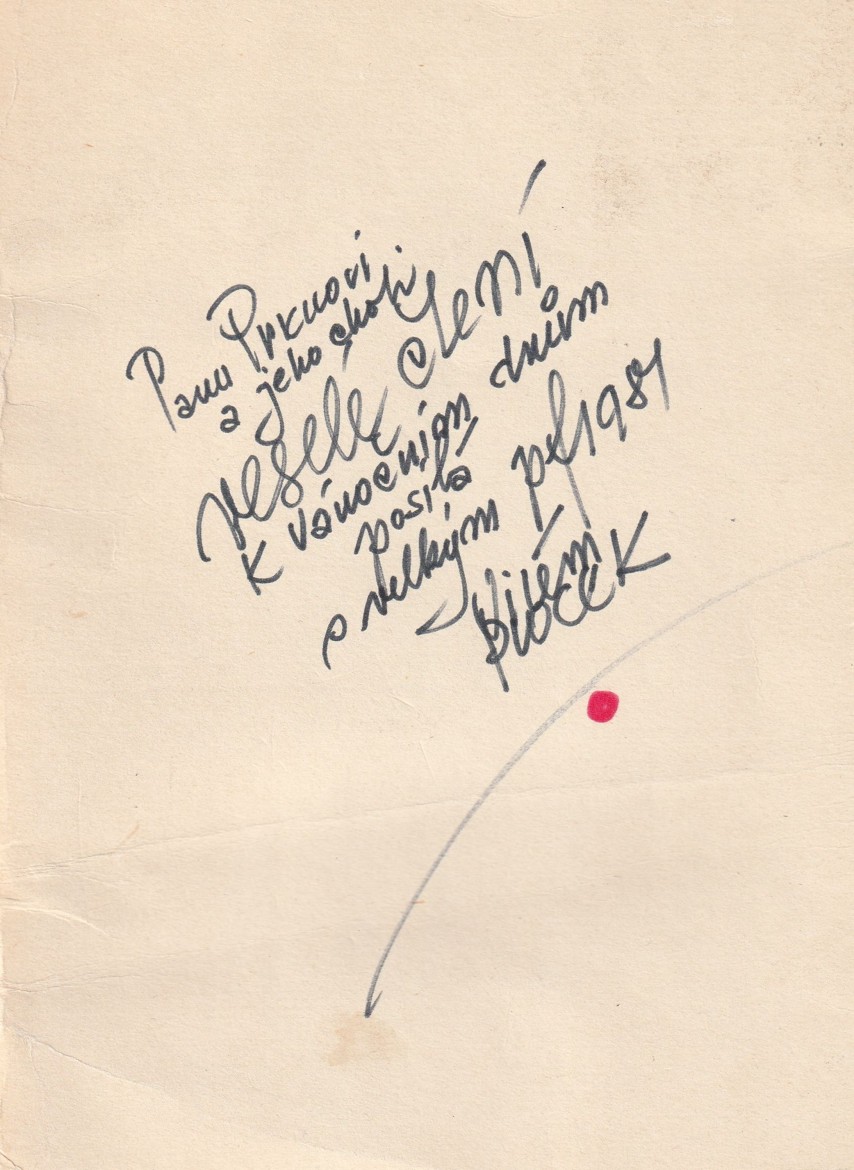 Panu Prknovi
a jeho choti
veselé čtení
k vánočním dnům
posílá
s velkým pf 1981
Vilém